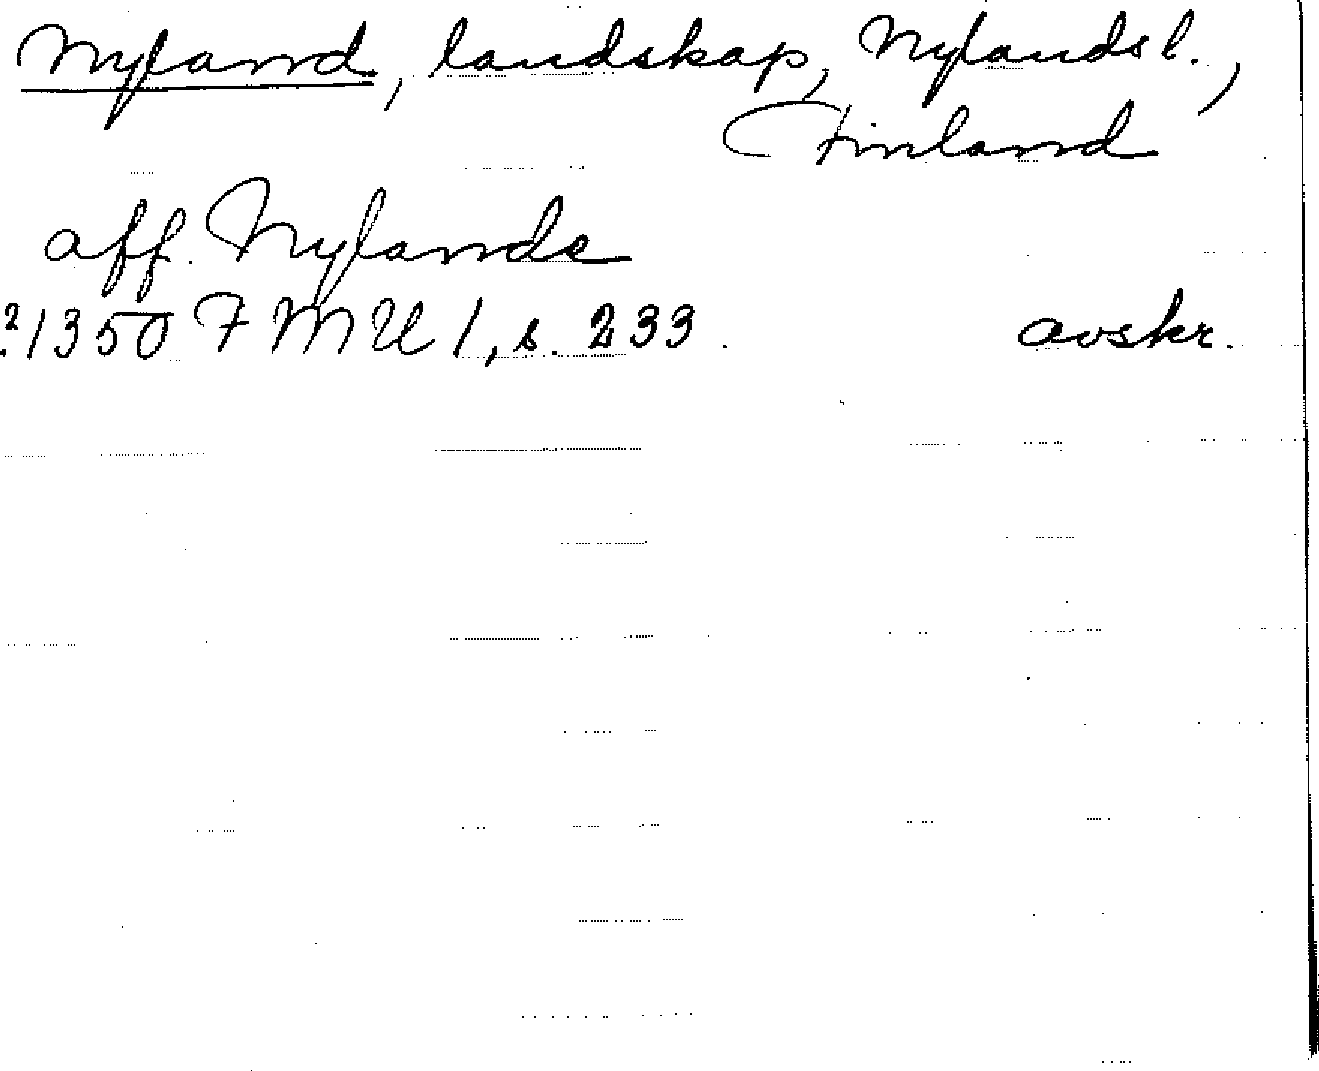 Nyland, landskap, Nylands l.,
Finland
aff. Nylande
?1350 FMU 1, s. 233. avskr.